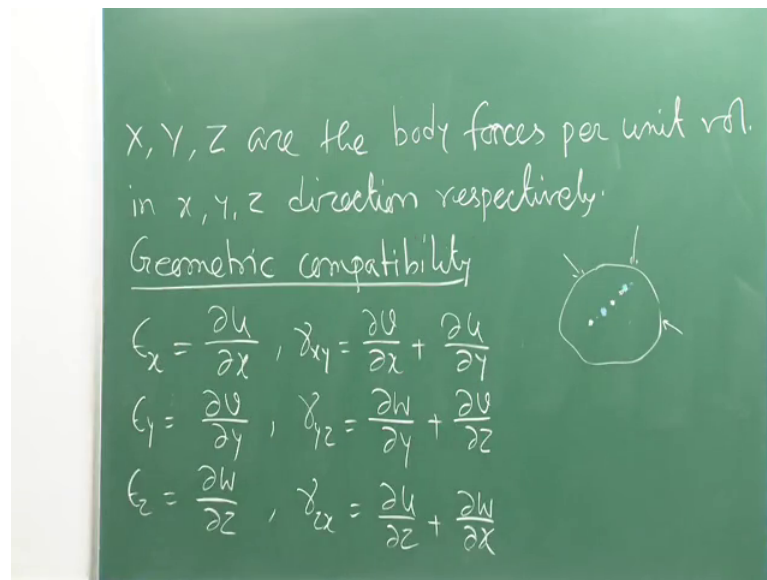 X, Y, Z are the body forces per unit vol.
in x, y, z direction respectively.
Geometric compatibility
ϵₓ = ∂u/∂x , γxy = ∂v/∂x + ∂u/∂y
ϵy = ∂v/∂y , γyz = ∂w/∂y + ∂v/∂z
ϵz = ∂w/∂z , γzx = ∂u/∂z + ∂w/∂x